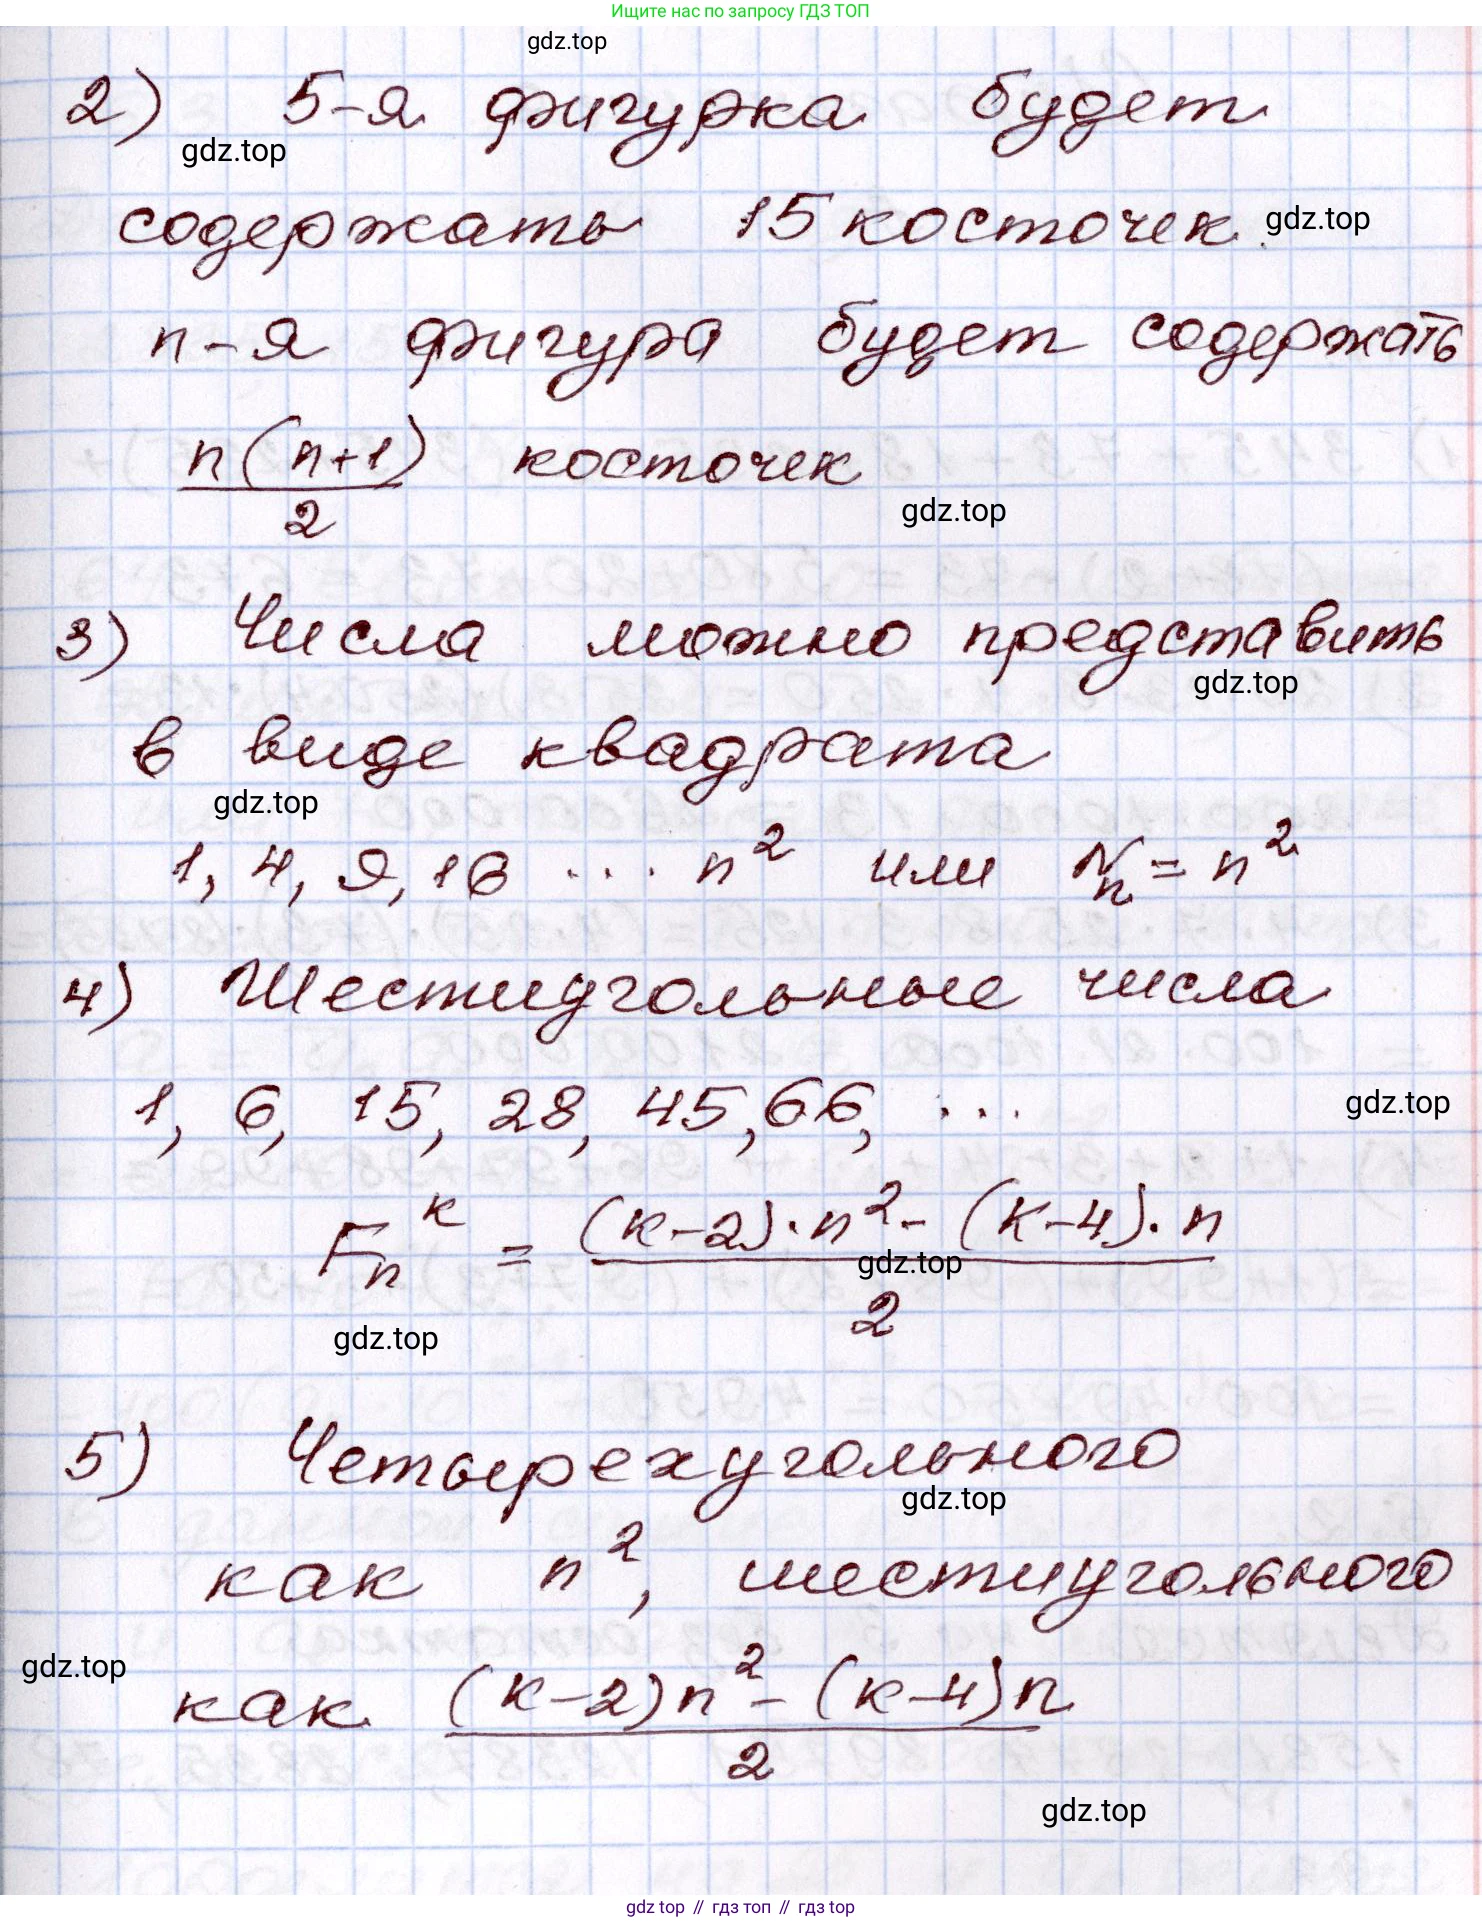 Ищите нас по запросу ГДЗ ТОП
gdz.top
2) 5-я фигурка будет
gdz.top
содержать 15 косточек. gdz.top
n-я фигура будет содержать
n(n+1)/2 косточек
gdz.top
3) Числа можно представить
gdz.top
в виде квадрата
gdz.top
1, 4, 9, 16 ... n² или Nₙ = n²
4) Шестиугольные числа
1, 6, 15, 28, 45, 66, ...
gdz.top
Fₙᵏ = ((k-2)·n² - (k-4)·n)/2
gdz.top
gdz.top
5) Четырехугольного
gdz.top
как n², шестиугольного
gdz.top
как ((k-2)n² - (k-4)n)/2
gdz.top
gdz top // гдз топ // гдз top